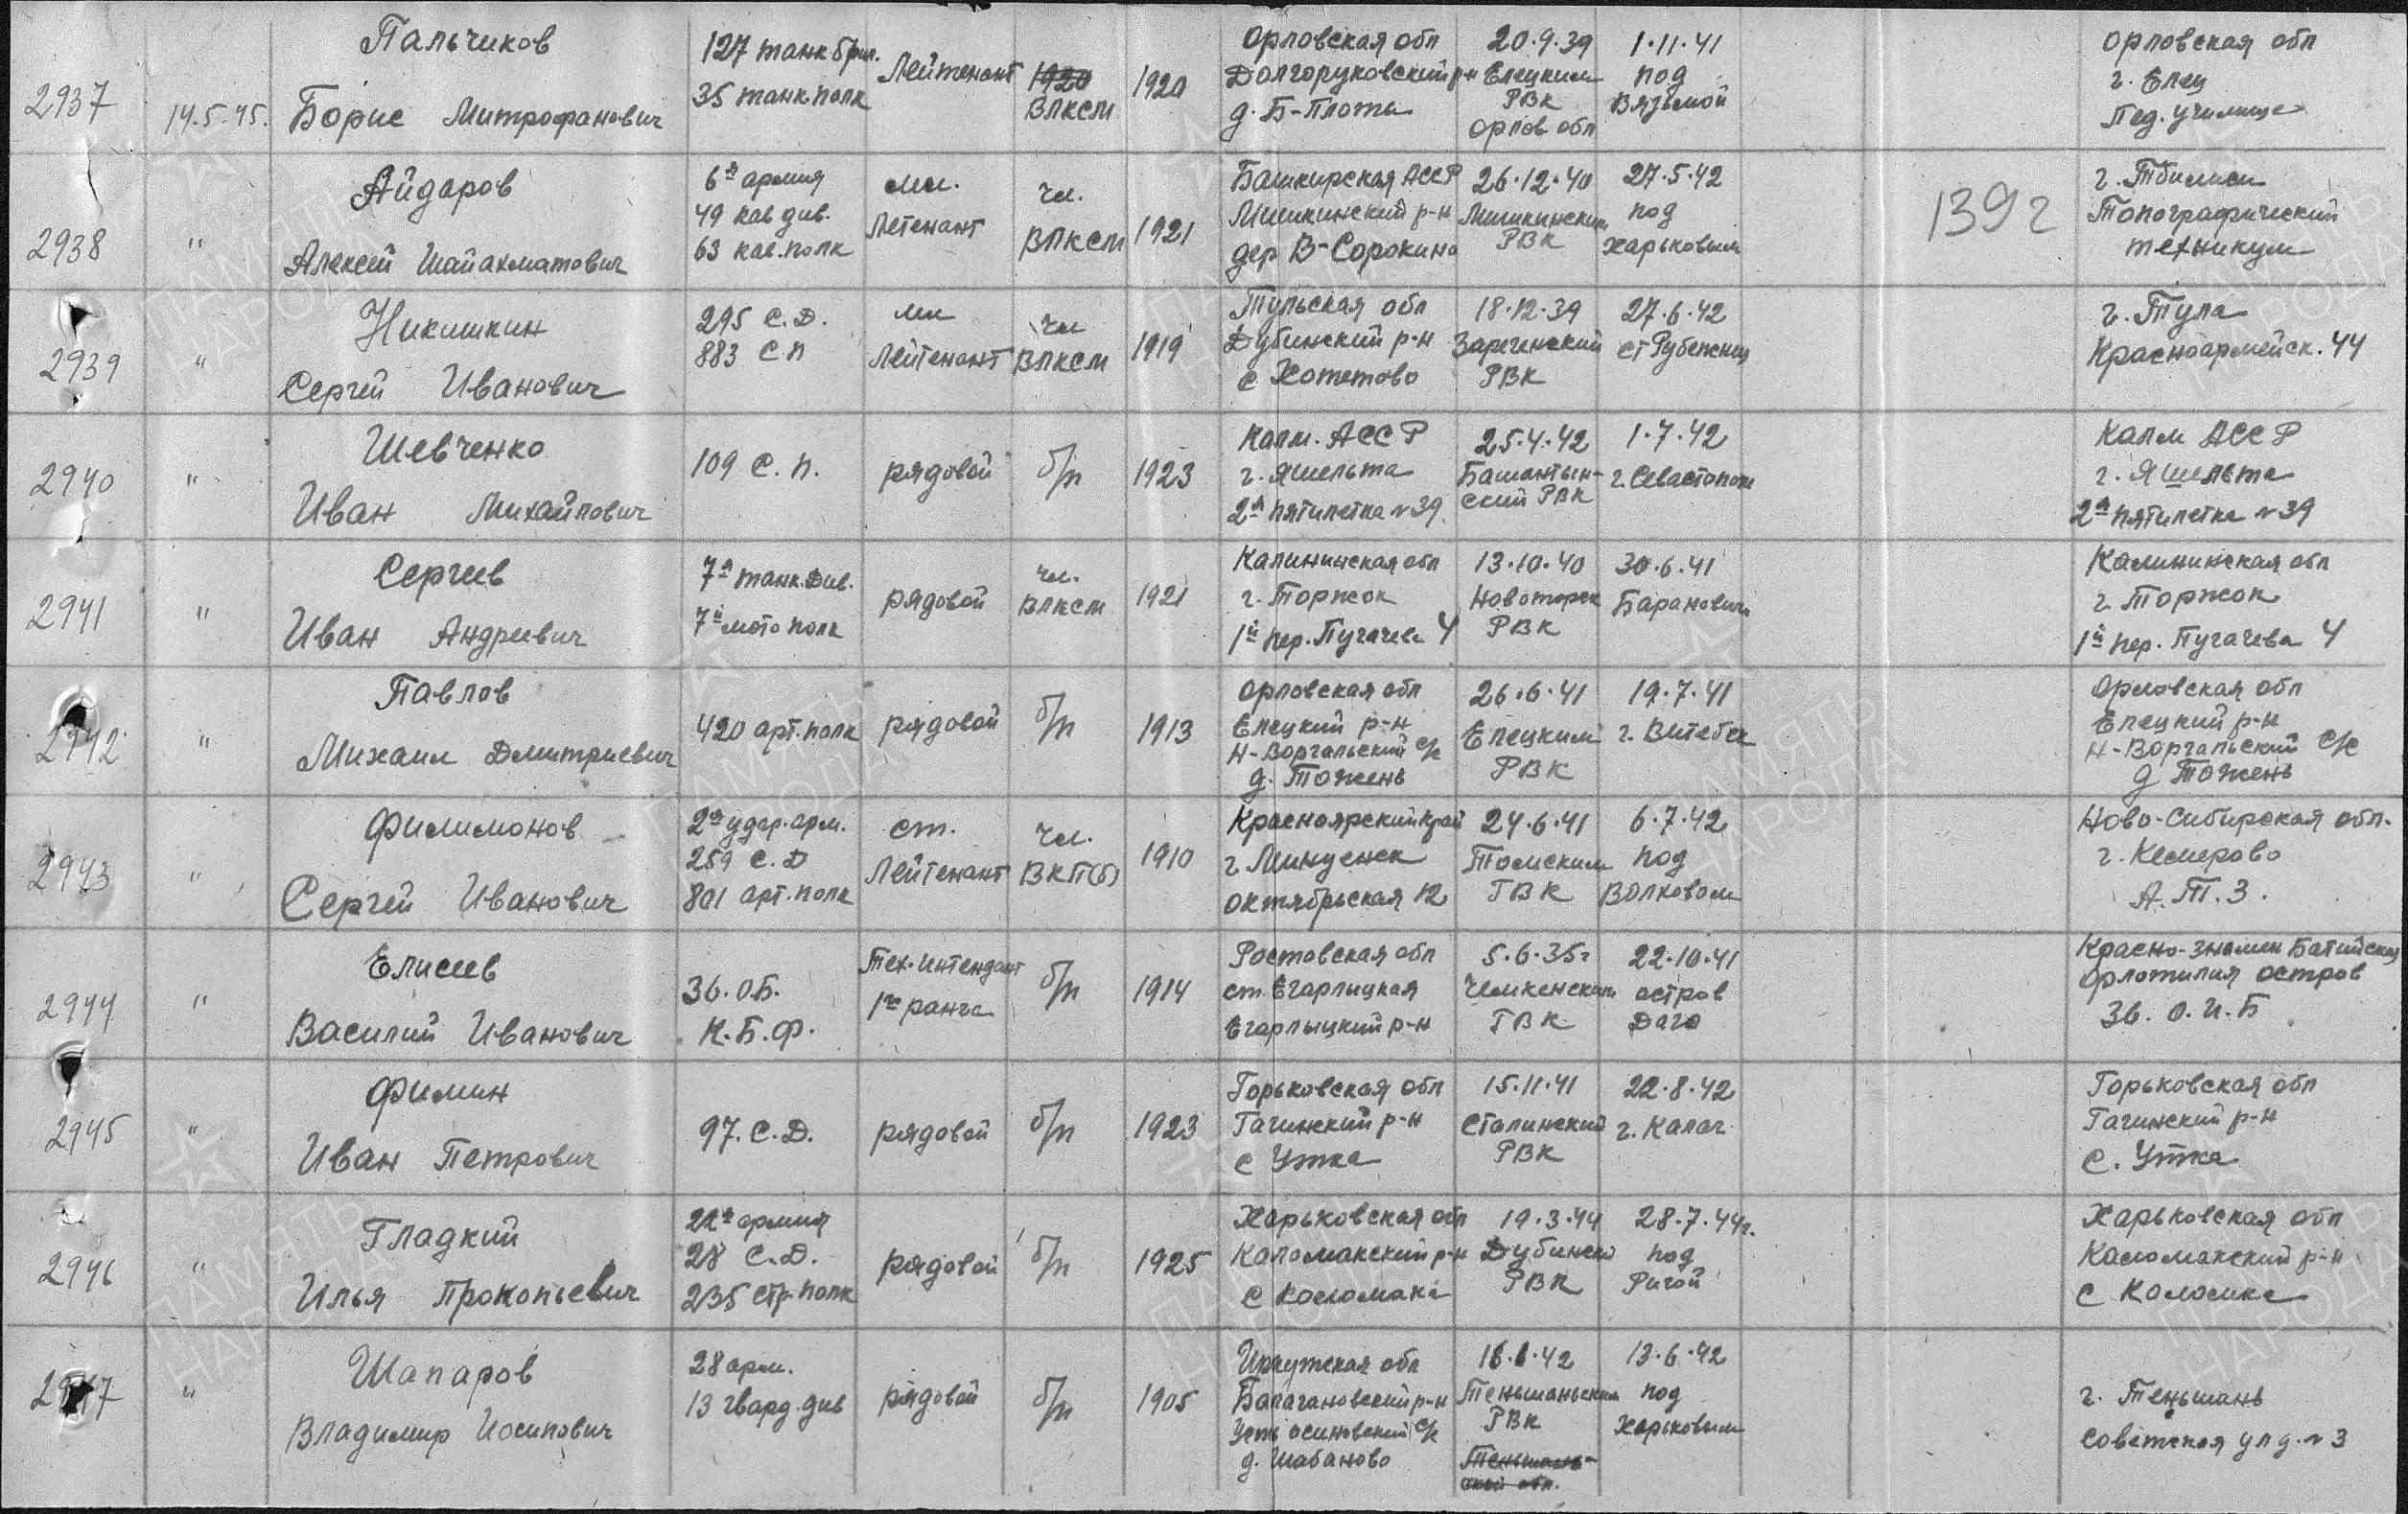 2937
14.5.45.
Пальчиков
Борис Митрофанович
127 танк бриг.
35 танк полк
Лейтенант
1920
ВЛКСМ
1920
Орловская обл
Долгоруковский р-н
д. Б-Плоты
20.9.39
Елецким
РВК
Орлов обл
1.11.41
под
Вязьмой
Орловская обл
г. Елец
Пед. училище
2938
"
Айдаров
Алексей Шайахматович
6я армия
49 кав див.
63 кав. полк
мл.
Летенант
чл.
ВЛКСМ
1921
Башкирская АССР
Мишкинский р-н
дер В-Сорокино
26.12.40
Мишкинским
РВК
27.5.42
под
Харьковым
139г
г. Тбилиси
Топографический
техникум
2939
"
Никишкин
Сергей Иванович
295 С.Д.
883 СП
мл
Лейтенант
чл
ВЛКСМ
1919
Тульская обл
Дубинский р-н
с Хотетово
18.12.39
Заречинский
РВК
27.6.42
ст Рубежниц
г. Тула
Красноармейск. 44
2940
"
Шевченко
Иван Михайлович
109 С.П.
рядовой
б/п
1923
Калм. АССР
г. Яшельта
2я пятилетка №39
25.4.42
Башантын-
ский РВК
1.7.42
г. Севастополь
Калм АССР
г. Яшельта
2я пятилетка №39
2941
"
Сергеев
Иван Андреевич
7я танк. Див.
7й мото полк
рядовой
чл.
ВЛКСМ
1921
Калининская обл
г. Торжок
1й пер. Пугачева 4
13.10.40
Новоторж
РВК
30.6.41
Барановичи
Калининская обл
г. Торжок
1й пер. Пугачева 4
2942
"
Павлов
Михаил Дмитриевич
420 арт. полк
рядовой
б/п
1913
Орловская обл
Елецкий р-н
Н-Воргальский с/с
д. Тожень
26.6.41
Елецким
РВК
19.7.41
г. Витебск
Орловская обл
Елецкий р-н
Н-Воргальский с/с
д Тожень
2943
"
Филимонов
Сергей Иванович
2я удар. арм.
259 С.Д
801 арт. полк
ст.
Лейтенант
чл.
ВКП(б)
1910
Красноярский край
г. Минусенск
Октябрьская 12
24.6.41
Томским
ГВК
6.7.42
под
Волховом
Ново-Сибирская обл.
г. Кемерово
А.Т.З.
2944
"
Елисеев
Василий Иванович
36.О.Б.
К.Б.Ф.
Тех. интендант
1го ранга
б/п
1914
Ростовская обл
ст. Егарлицкая
Егарлыцкий р-н
5.6.35г
Чимкенским
ГВК
22.10.41
остров
Даго
Красно-знамен Батийская
флотилия остров
36. О.И.Б
2945
"
Фимин
Иван Петрович
97. С.Д.
рядовой
б/п
1923
Горьковская обл
Гагинский р-н
с Утка
15.11.41
Сталинский
РВК
22.8.42
г. Калач
Горьковская обл
Гагинский р-н
с. Утка
2946
"
Гладкий
Илья Прокопьевич
22я армия
28 С.Д.
235 стр. полк
рядовой
б/п
1925
Харьковская обл
Коломакский р-н
с Коломаке
19.3.44
Дубинско
РВК
28.7.44г.
под
Ригой
Харьковская обл
Коломакский р-н
с Коломаке
2947
"
Шапаров
Владимир Иосипович
28 арм.
13 гвард. див
рядовой
б/п
1905
Иркутская обл
Балагановский р-н
Усть осиновский с/с
д. Шабаново
16.6.42
Теньшаньским
РВК
Теньшань-
ской обл.
13.6.42
под
Харьковым
г. Теньшань
Советская ул д. №3
ПАМЯТЬ
НАРОДА